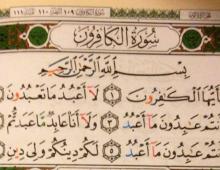 سُورَةُ الْكَافِرُونَ
بِسْمِ ٱللَّهِ ٱلرَّحْمَٰنِ ٱلرَّحِيمِ
أَيُّهَا ٱلْكَٰفِرُونَ ١ لَآ أَعْبُدُ مَا تَعْبُدُونَ
نتُمْ عَٰبِدُونَ مَآ أَعْبُدُ ٣ وَلَآ أَنَا۠ عَابِدٌ مَّا عَبَدتُّمْ
نتُمْ عَٰبِدُونَ مَآ أَعْبُدُ ٥ لَكُمْ دِينُكُمْ وَلِىَ دِينِ